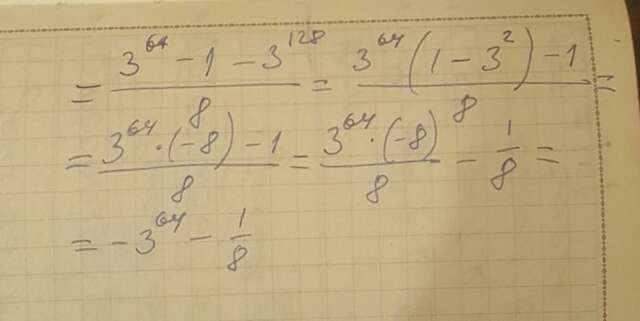 = (3^64 - 1 - 3^128) / 8 = (3^64 (1 - 3^2) - 1) / 8 =
= (3^64 · (-8) - 1) / 8 = (3^64 · (-8)) / 8 - 1/8 =
= -3^64 - 1/8